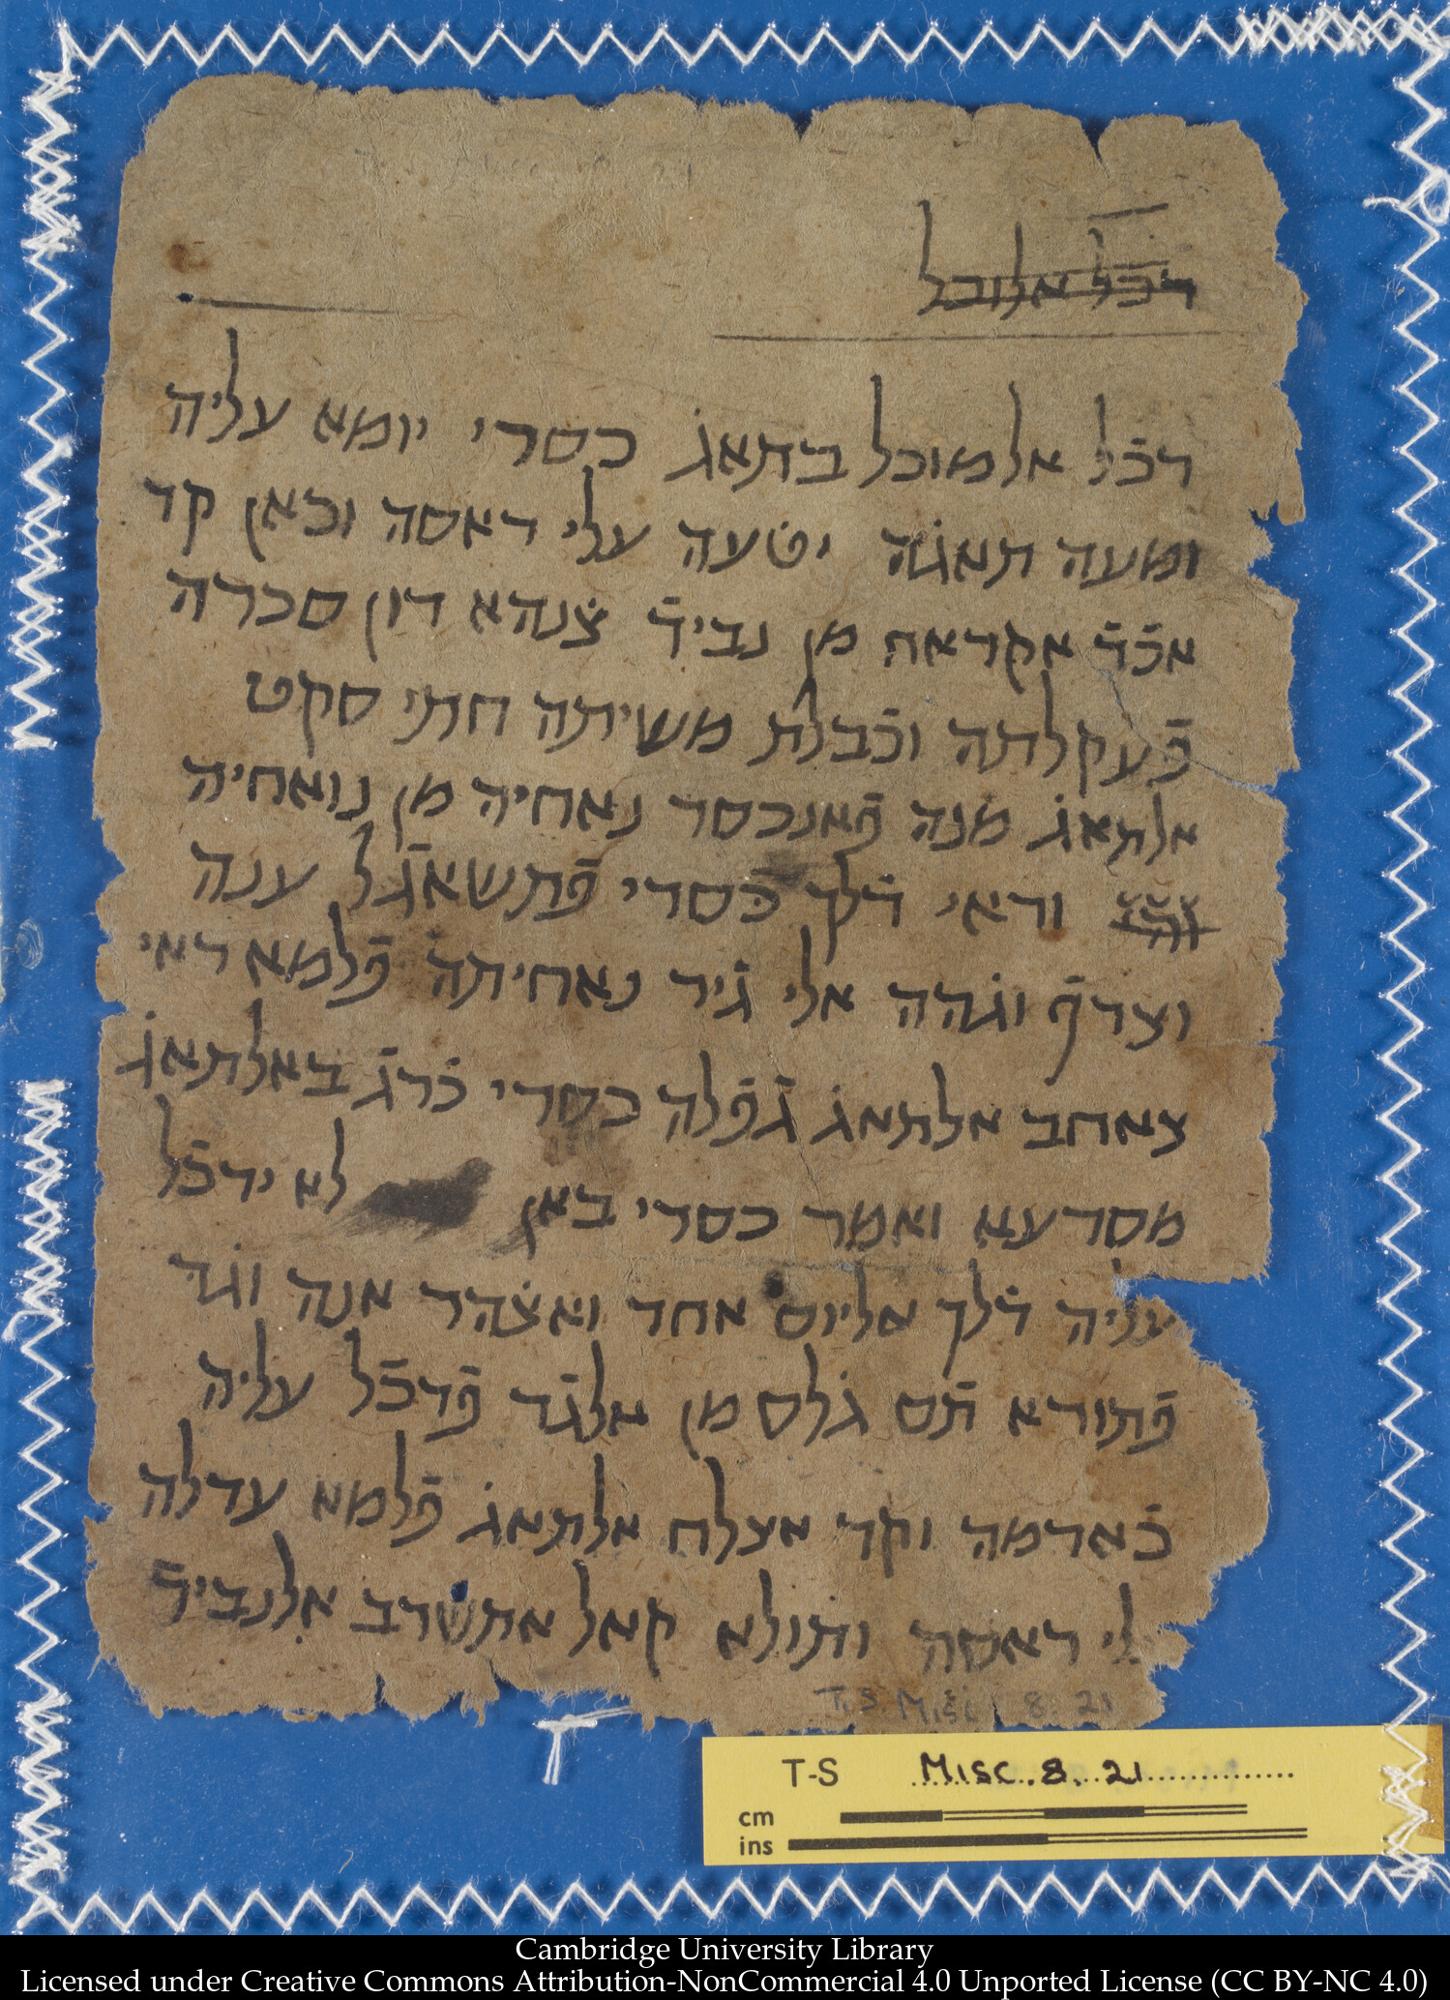 דכ̇ל אלמוכל בתאג̇ כסרי יומא עליה
ומעה תאג̇ה יצ̇עה עלי ראסה וכאן קד
אכ̇ד̇ אקראח מן נביד̇ צ̇נהא דון סכרה
פ̇עקלתה וכ̇בלת משיתה חתי סקט
אלתאג̇ מנה פ̇אנכסר נאחיה מן נואחיה
וראי ד̇לך כסרי פ̇תשאג̇ל ענה
וצרף̇ וג̇הה אלי ג̇יר נאחיתה פ̇למא ראי
צאחב אלתאג̇ ג̇פ̇לה כסרי כ̇רג̇ באלתאג̇
מסרעא ואמר כסרי באן לא ידכ̇ל
עליה ד̇לך אליום אחד ואצ̇הר אנה וג̇ד
פ̇תורא ת̇ם ג̇לס מן אלג̇ד פ̇דכ̇ל עליה
כ̇אדמה וקד אצלח אלתאג̇ פ̇למא עדלה
לי ראסה ותולא קאל אתשרב אלנביד̇
T.S. Misc 8. 21
T-S Misc. 8. 21
cm
ins
Cambridge University Library
Licensed under Creative Commons Attribution-NonCommercial 4.0 Unported License (CC BY-NC 4.0)